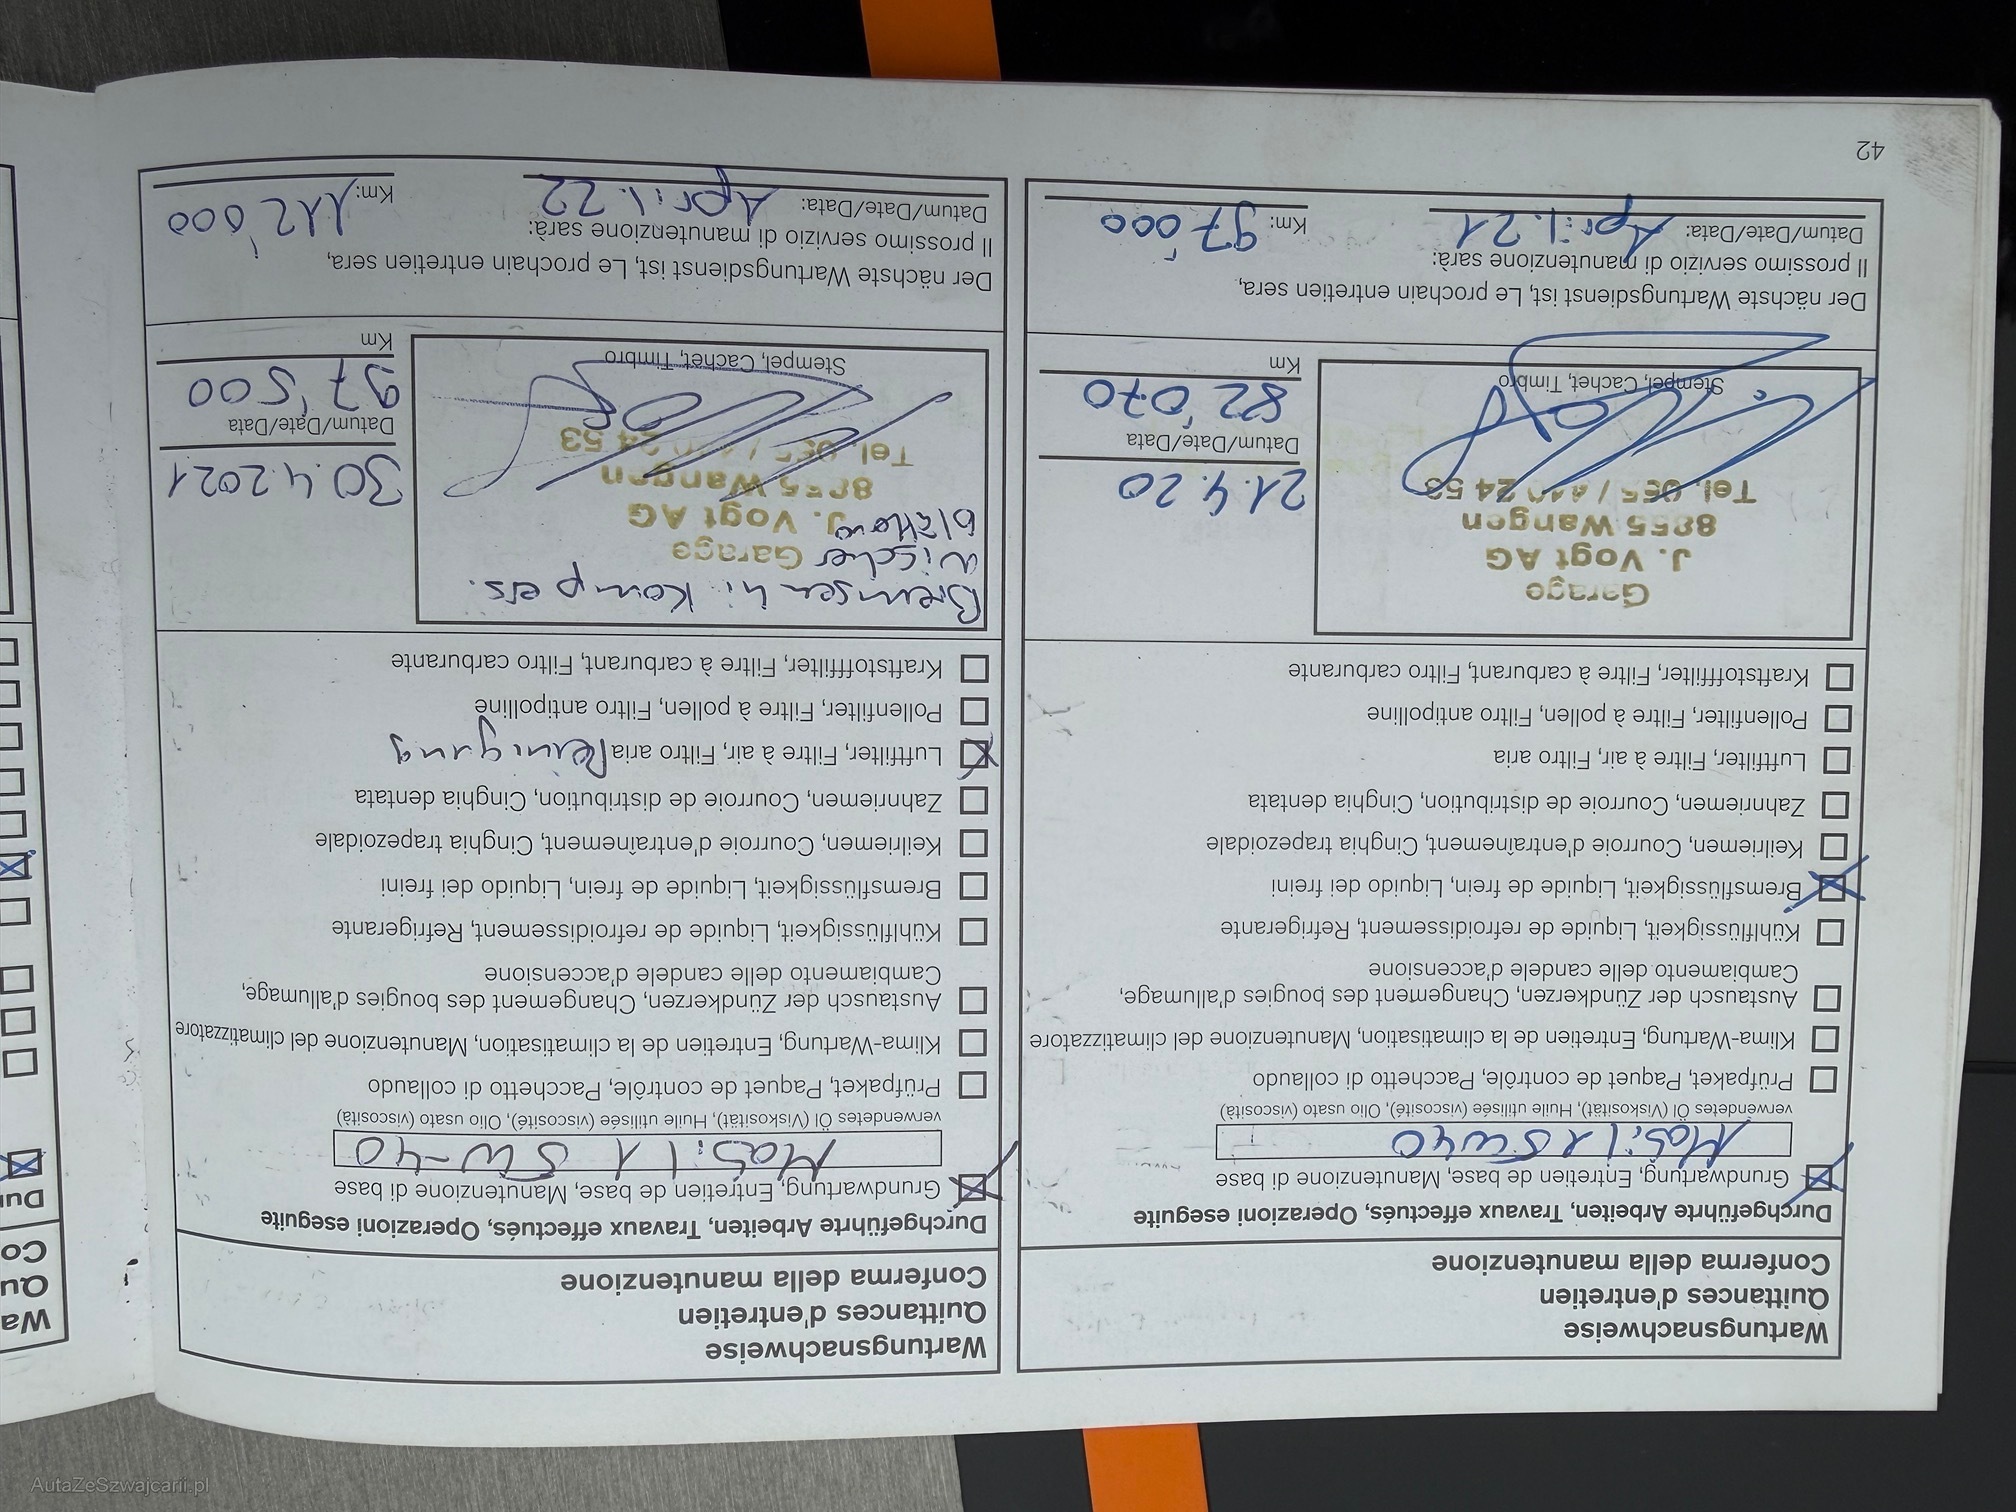 Wartungsnachweise
Quittances d'entretien
Conferma della manutenzione
Durchgeführte Arbeiten, Travaux effectués, Operazioni eseguite
Grundwartung, Entretien de base, Manutenzione di base
Mobil 1 5W40
verwendetes Öl (Viskosität), Huile utilisée (viscosité), Olio usato (viscosità)
Prüfpaket, Paquet de contrôle, Pacchetto di collaudo
Klima-Wartung, Entretien de la climatisation, Manutenzione del climatizzatore
Austausch der Zündkerzen, Changement des bougies d'allumage,
Cambiamento delle candele d'accensione
Kühlflüssigkeit, Liquide de refroidissement, Refrigerante
Bremsflüssigkeit, Liquide de frein, Liquido dei freini
Keilriemen, Courroie d'entraînement, Cinghia trapezoidale
Zahnriemen, Courroie de distribution, Cinghia dentata
Luftfilter, Filtre à air, Filtro aria
Pollenfilter, Filtre à pollen, Filtro antipolline
Kraftstofffilter, Filtre à carburant, Filtro carburante
Garage
J. Vogt AG
8855 Wangen
Tel. 055 / 440 24 53
Stempel, Cachet, Timbro
21.4.20
Datum/Date/Data
82'070
Km
Der nächste Wartungsdienst ist, Le prochain entretien sera,
Il prossimo servizio di manutenzione sarà:
Datum/Date/Data: April.21 Km: 97'000
42
Wartungsnachweise
Quittances d'entretien
Conferma della manutenzione
Durchgeführte Arbeiten, Travaux effectués, Operazioni eseguite
Grundwartung, Entretien de base, Manutenzione di base
Mobil 1 5W-40
verwendetes Öl (Viskosität), Huile utilisée (viscosité), Olio usato (viscosità)
Prüfpaket, Paquet de contrôle, Pacchetto di collaudo
Klima-Wartung, Entretien de la climatisation, Manutenzione del climatizzatore
Austausch der Zündkerzen, Changement des bougies d'allumage,
Cambiamento delle candele d'accensione
Kühlflüssigkeit, Liquide de refroidissement, Refrigerante
Bremsflüssigkeit, Liquide de frein, Liquido dei freini
Keilriemen, Courroie d'entraînement, Cinghia trapezoidale
Zahnriemen, Courroie de distribution, Cinghia dentata
Luftfilter, Filtre à air, Filtro aria Reinigung
Pollenfilter, Filtre à pollen, Filtro antipolline
Kraftstofffilter, Filtre à carburant, Filtro carburante
Bremsen hi. kompets.
Wischer
blätter
Garage
J. Vogt AG
8855 Wangen
Tel. 055 / 440 24 53
Stempel, Cachet, Timbro
30.4.2021
Datum/Date/Data
97'500
Km
Der nächste Wartungsdienst ist, Le prochain entretien sera,
Il prossimo servizio di manutenzione sarà:
Datum/Date/Data: April.22 Km: 112'000
Wa
Qu
Co
Dur
AutaZeSzwajcarii.pl